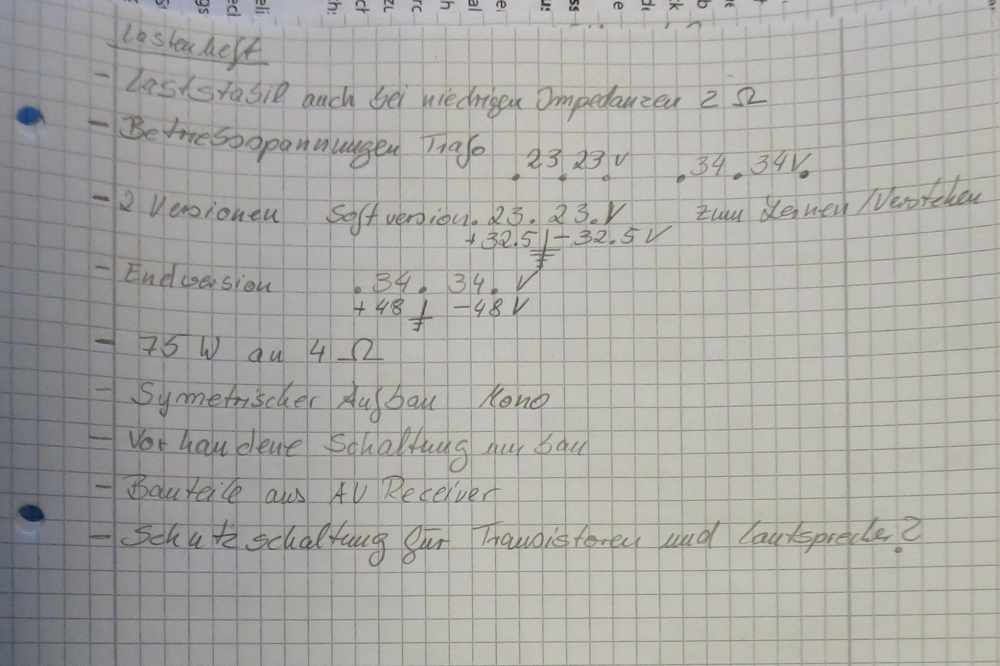 Lastenheft
- Laststabil auch bei niedrigen Impedanzen 2 Ω
- Betriebsspannungen Trafo .23.23.V .34.34V.
- 2 Versionen Softversion .23.23.V zum Lernen/Verstehen
+32.5 | -32.5V
- Endversion .34.34.V
+48 | -48V
- 75 W an 4 Ω
- Symetrischer Aufbau Mono
- Vorhandene Schaltung umbau
- Bauteile aus AV Receiver
- Schutzschaltung für Transistoren und Lautsprecher?